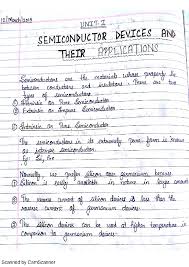 12/March/2019
UNIT-I
SEMICONDUCTOR DEVICES AND
THEIR APPLICATIONS
Semiconductors are the materials whose property lie
between conductors and insulators. There are two
types of semiconductors
① Intrinsic or Pure Semiconductor
② Extrinsic or Impure Semiconductor
① Intrinsic or Pure Semiconductor
The semiconductors in its extremely pure form is known
as intrinsic semiconductor.
Eg: Si, Ge
Normally, we prefer silicon over germanium because
① Silicon is easily available in nature in large amount
② The reverse current of silicon devices is less than the
reverse current of germanium devices.
③ The silicon devices can be used at higher temperature in
comparison to germanium devices.
Scanned by CamScanner